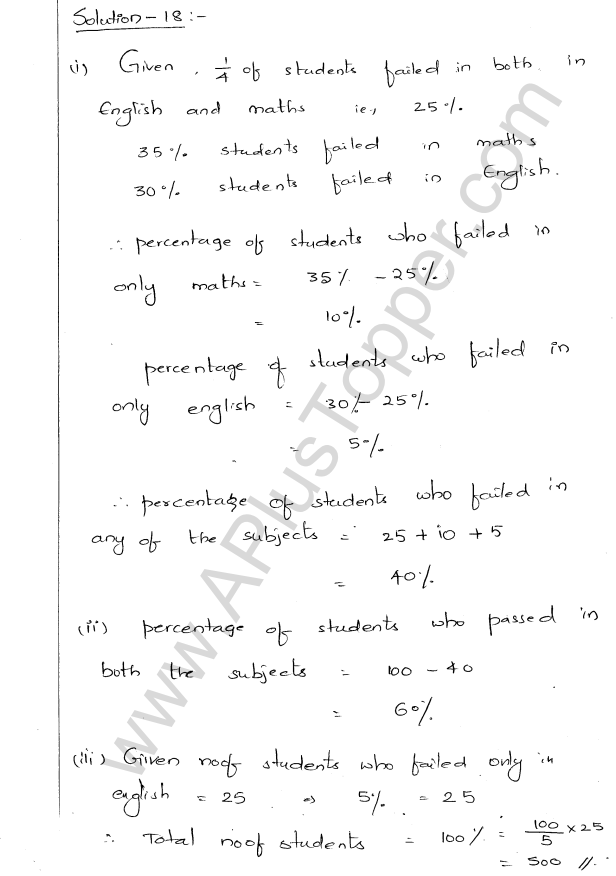 Solution-18:-
(i) Given, 1/4 of students failed in both in
English and maths ie., 25%.
35% students failed in maths
30% students failed in English.
∴ percentage of students who failed in
only maths = 35% - 25%.
= 10%.
percentage of students who failed in
only english = 30% - 25%.
= 5%.
∴ percentage of students who failed in
any of the subjects = 25 + 10 + 5
= 40%.
(ii) percentage of students who passed in
both the subjects = 100 - 40
= 60%.
(iii) Given noof students who failed only in
english = 25 ⇒ 5% = 25
∴ Total noof students = 100% = 100/5 × 25
= 500 //.
www.APlusTopper.com